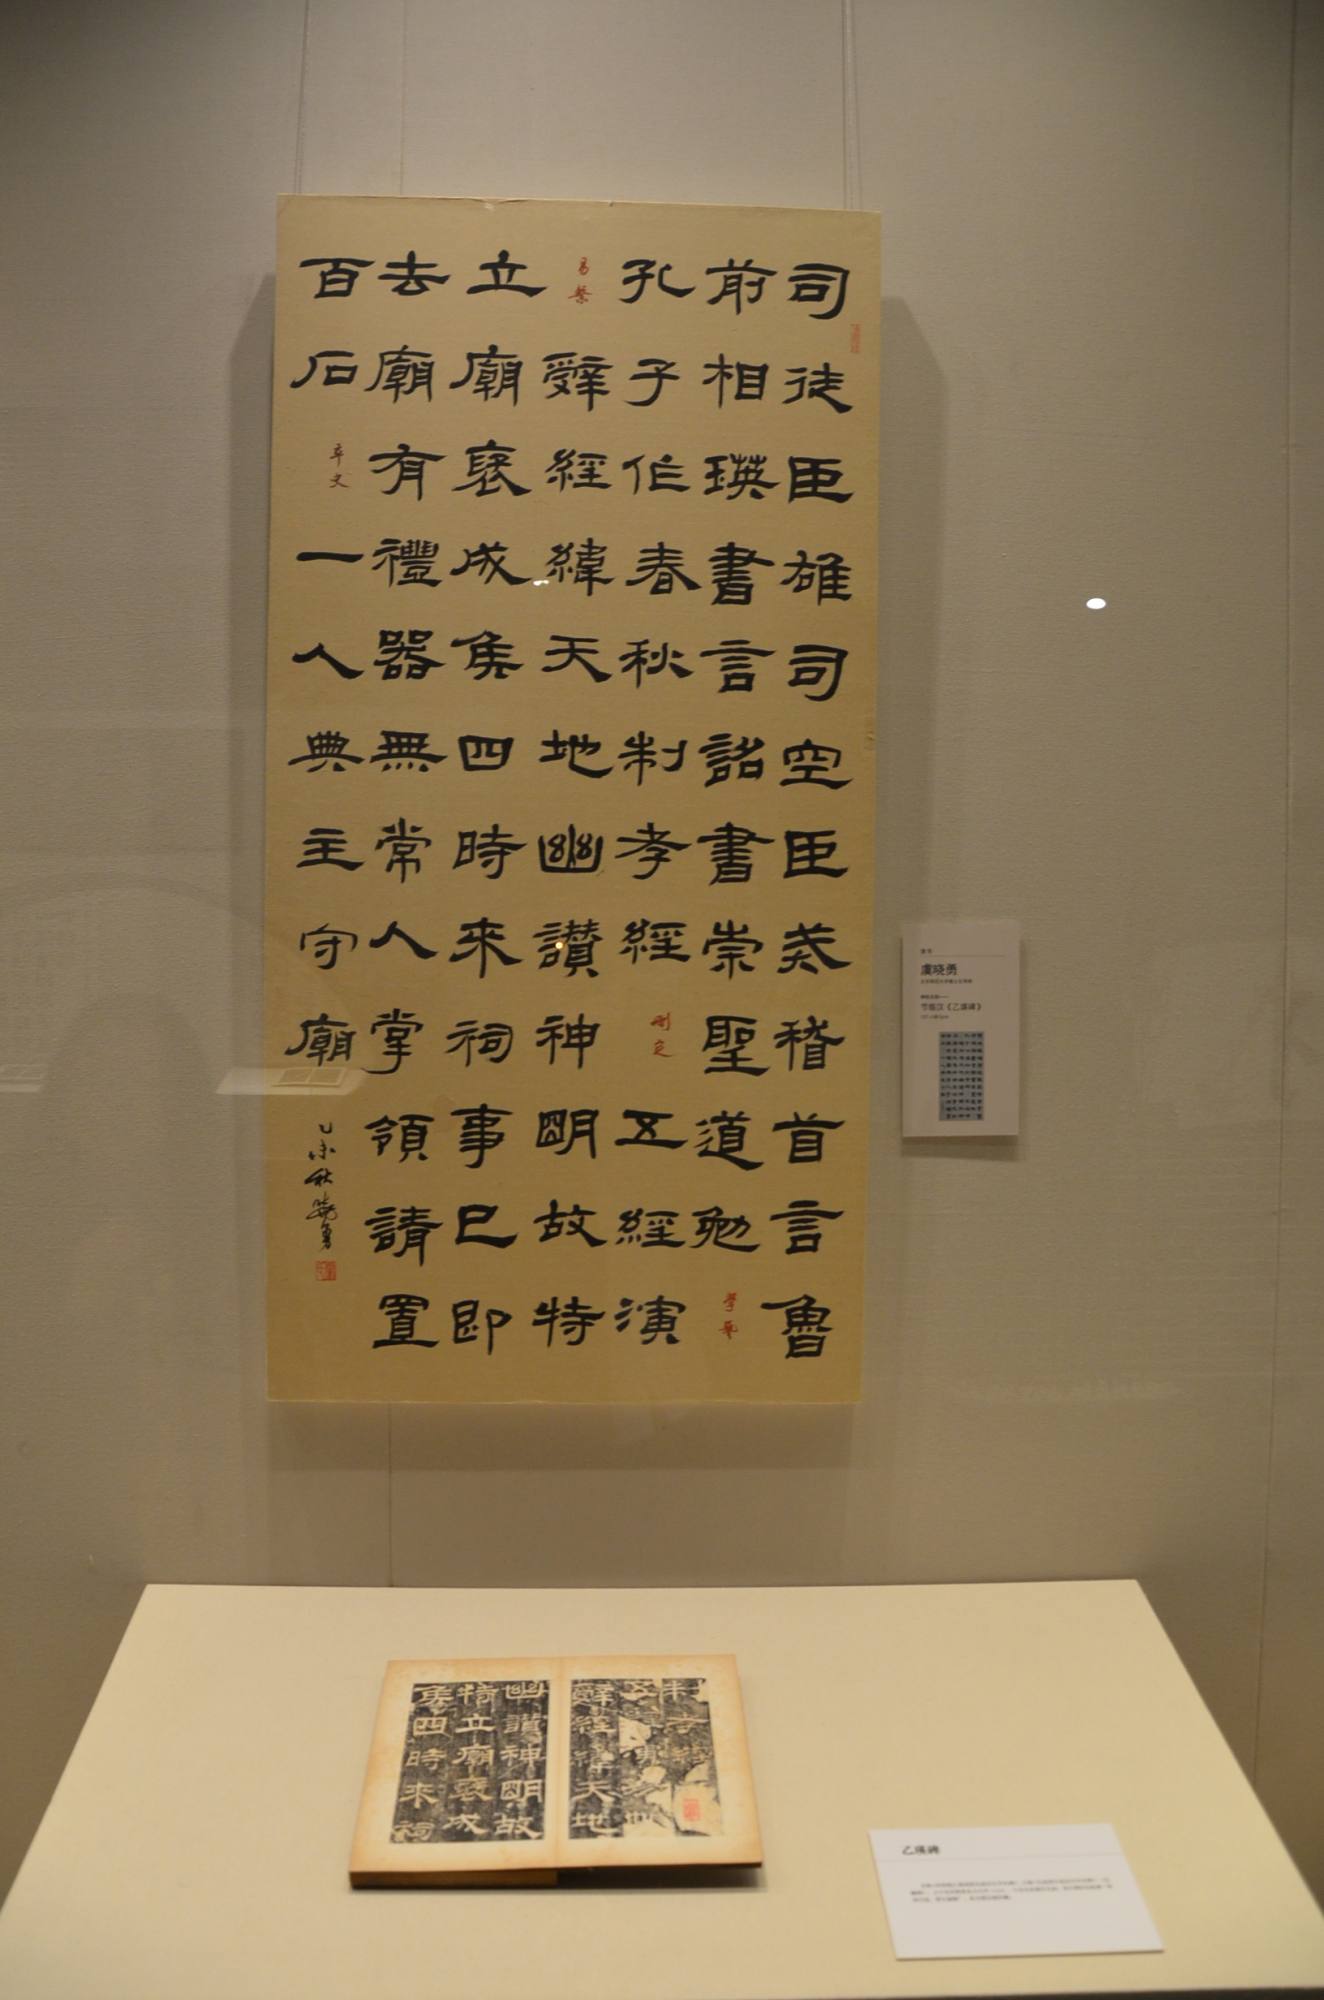 司徒臣雄司空臣戒稽首言魯
前相瑛書言詔書崇聖道勉
學藝
孔子作春秋制孝經
刪定
五經演
易繫
辭經緯天地幽讚神明故特
立廟褒成侯四時來祠事已即
去廟有禮器無常人掌領請置
百石
卒史
一人典主守廟
乙未秋曉勇
虞晓勇
节临汉《乙瑛碑》
制孝經
辭經緯天地
幽讚神明故
特立廟褒成
侯四時來祠
乙瑛碑